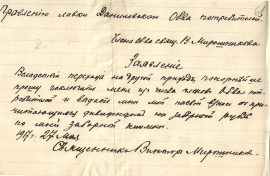 Правлению лавки Даниловского О-ва потребителей
Члена о-ва свящ. В. Мирошникова
Заявление
переход на другой приход, покорнейше
прошу исключить меня из числа членов о-ва по-
требителей и выдать мне мой паевой взнос с при-
читающимся дивидендом на заборный рубль
по моей заборной книжке.
1917 г. 27 мая
Священник Виктор Мирошников